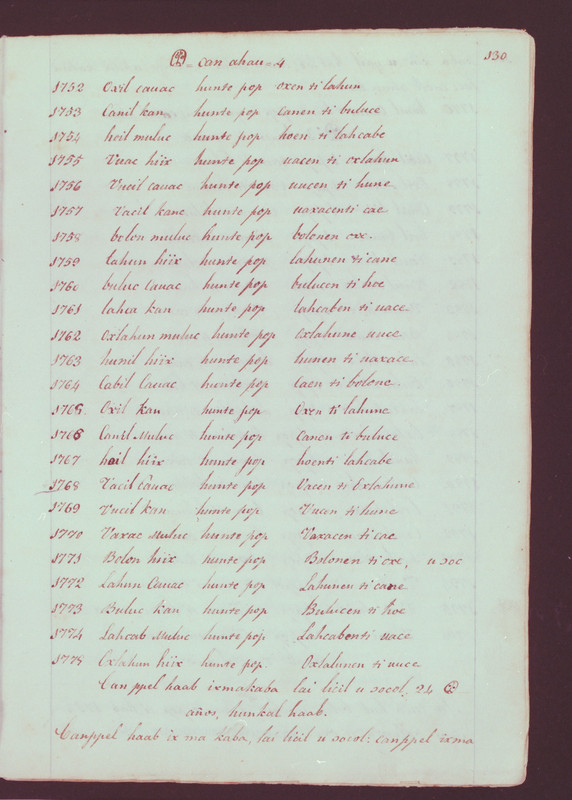 130.
can ahau - 4
1752 Oxil cauac hunte pop oxen ti lahun
1753 Canil kan hunte pop canen ti buluce
1754 hoil muluc hunte pop hoen ti lahcabe
1755 Vuac hiix hunte pop uacen ti oxlahun
1756 Vucil cauac hunte pop uucen ti hune
1757 Vacil kanc hunte pop uaxacenti cae
1758 bolon muluc hunte pop bolonen oxe.
1759 lahun hiix hunte pop lahunen ti cane
1760 buluc cauac hunte pop bulucen ti hoe
1761 lahca kan hunte pop lahcaben ti uace
1762 Oxlahun muluc hunte pop oxlahune uuce
1763 hunil hiix hunte pop hunen ti uaxace
1764 Cabil Cauac hunte pop caen ti bolone.
1765. Oxil Kan hunte pop Oxen ti lahune
1766 Canil Muluc hunte pop Canen ti buluce
1767 hoil hiix hunte pop hoenti lahcabe
1768 Vacil cauac hunte pop Vacen ti Oxlahune
1769 Vucil kan hunte pop Vucen ti hune
1770 Vaxac Muluc hunte pop Vaxacen ti cae
1771 Bolon hiix hunte pop Bolonen ti oxe, u xoc
1772 Lahun Cauac hunte pop Lahunen ti cane
1773 Buluc Kan hunte pop Bulucen ti hoe
1774 Lahcab Muluc hunte pop Lahcabenti uace
1775 Oxlahun hiix hunte pop. Oxlahunen ti uuce
Canppel haab ixmakaba lai licil u xocol, 24
años, hunkal haab.
Canppel haab ix ma kaba, lai licil u xocol: canppel ixma